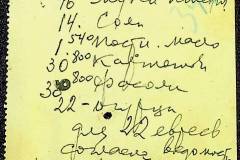 16
14. Соли
1 540 пости. масло
30 800 Картошки
30 800 фасоли
22 - огурца
для 22 евреев
согласно ведомост